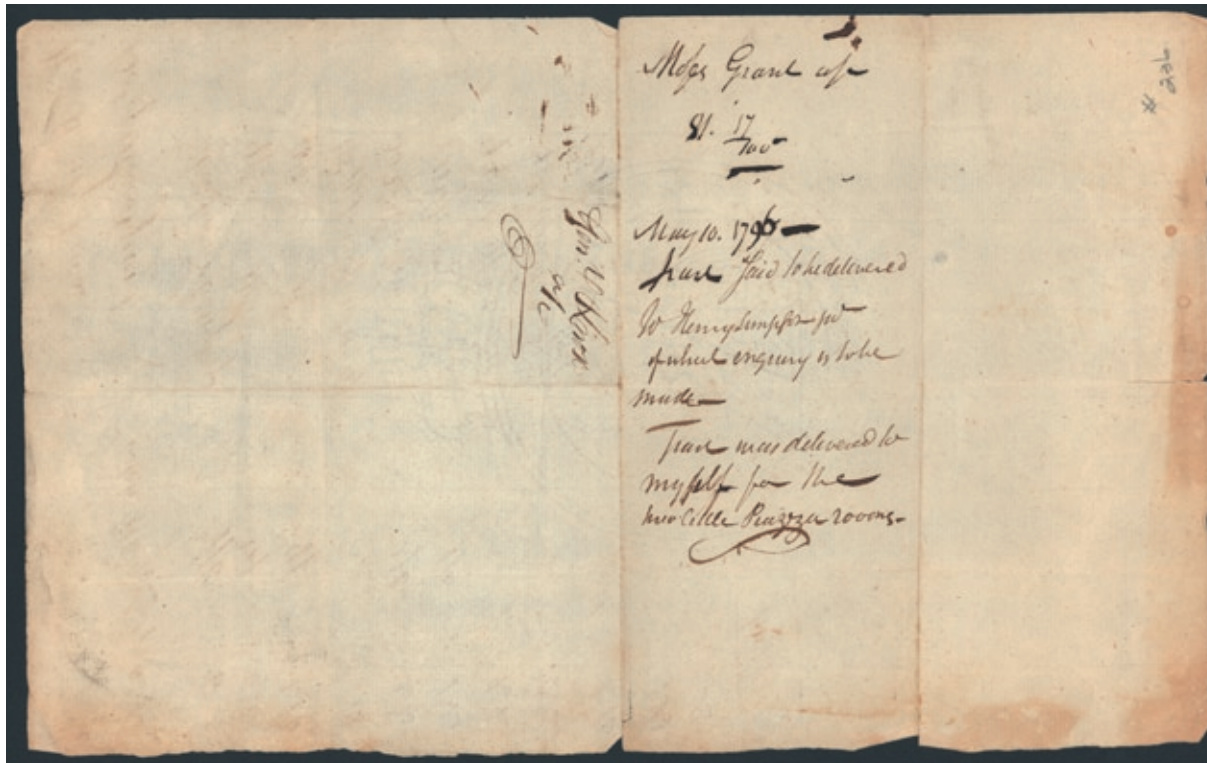 Moses Grant a/c
81. 17/100
May 10. 1796
part Said to be delivered
to Henry Simpson jur
of which enquiry is to be
made
Part was delivered to
myself for the
two little Piazza rooms
Genl Knox
a/c
# 226